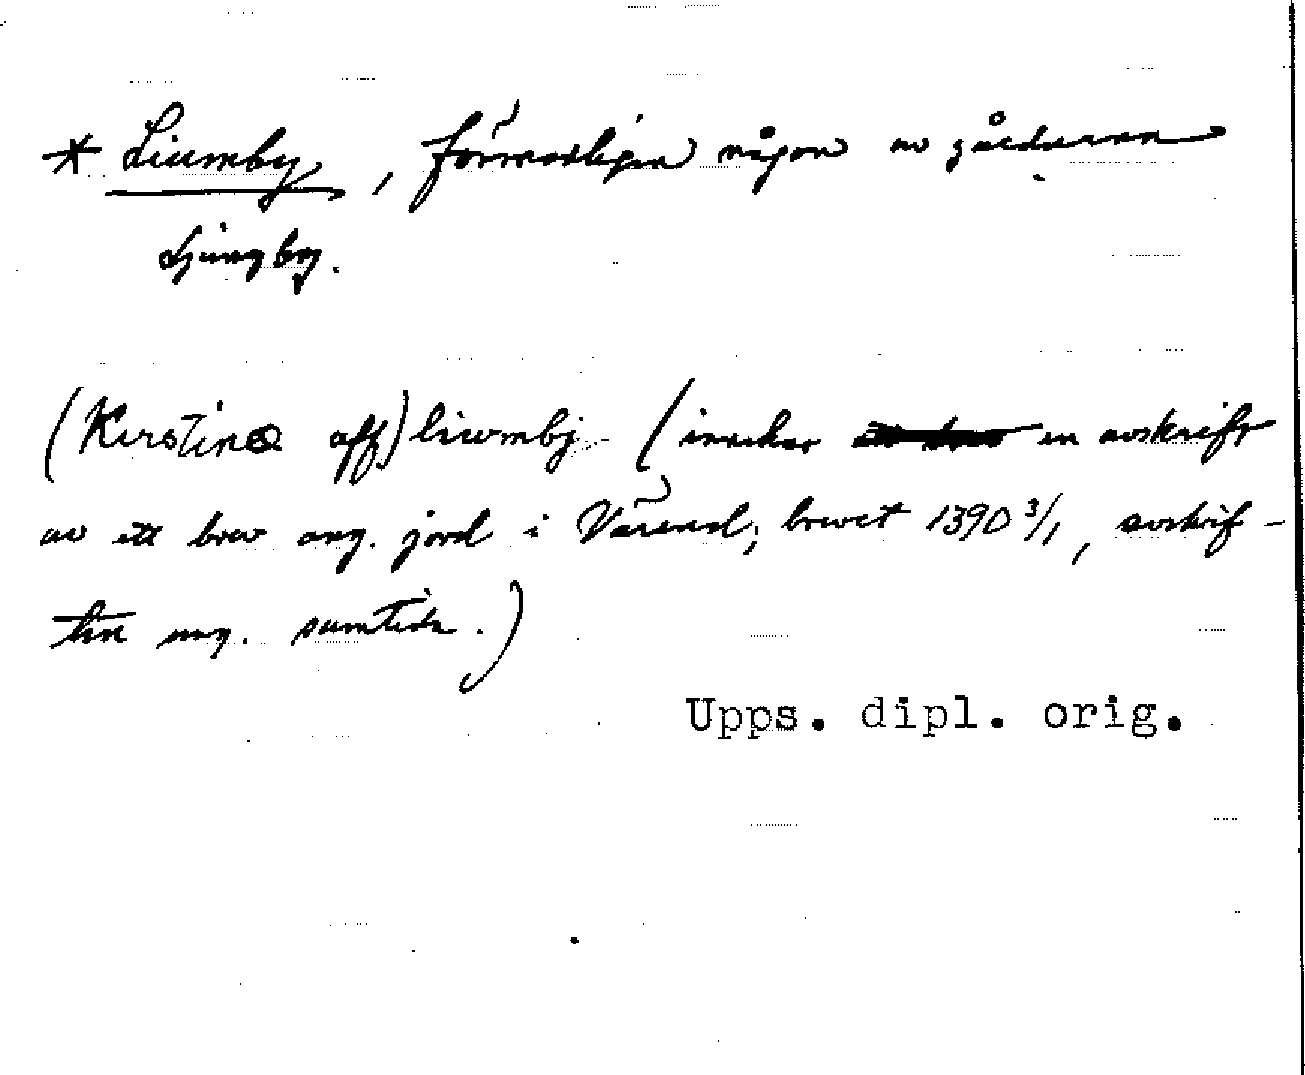 * Liumby, förmodligen någon av gårdarna
Ljungby.
(Kerstine aff) liwmbj (innehar en avskrift
av ett brev ang. jord i Värend; brevet 1390 3/1, avskrif-
ten ung. samtida.)
Upps. dipl. orig.